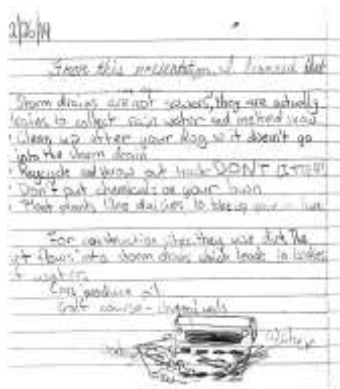 2/26/14
From this presentation, I learned that
Storm drains are not sewers, they are actually
drains to collect rain water and melted snow
· Clean up after your dog so it doesn't go
into the storm drain
· Recycle and throw out trash DON'T LITTER!
· Don't put chemicals on your lawn
· Plant plants like daisies to
For construction sites they use dirt The
dirt flows into a storm drain which leads to bodies
of water
Cars produce oil
Golf course - chemicals
Water